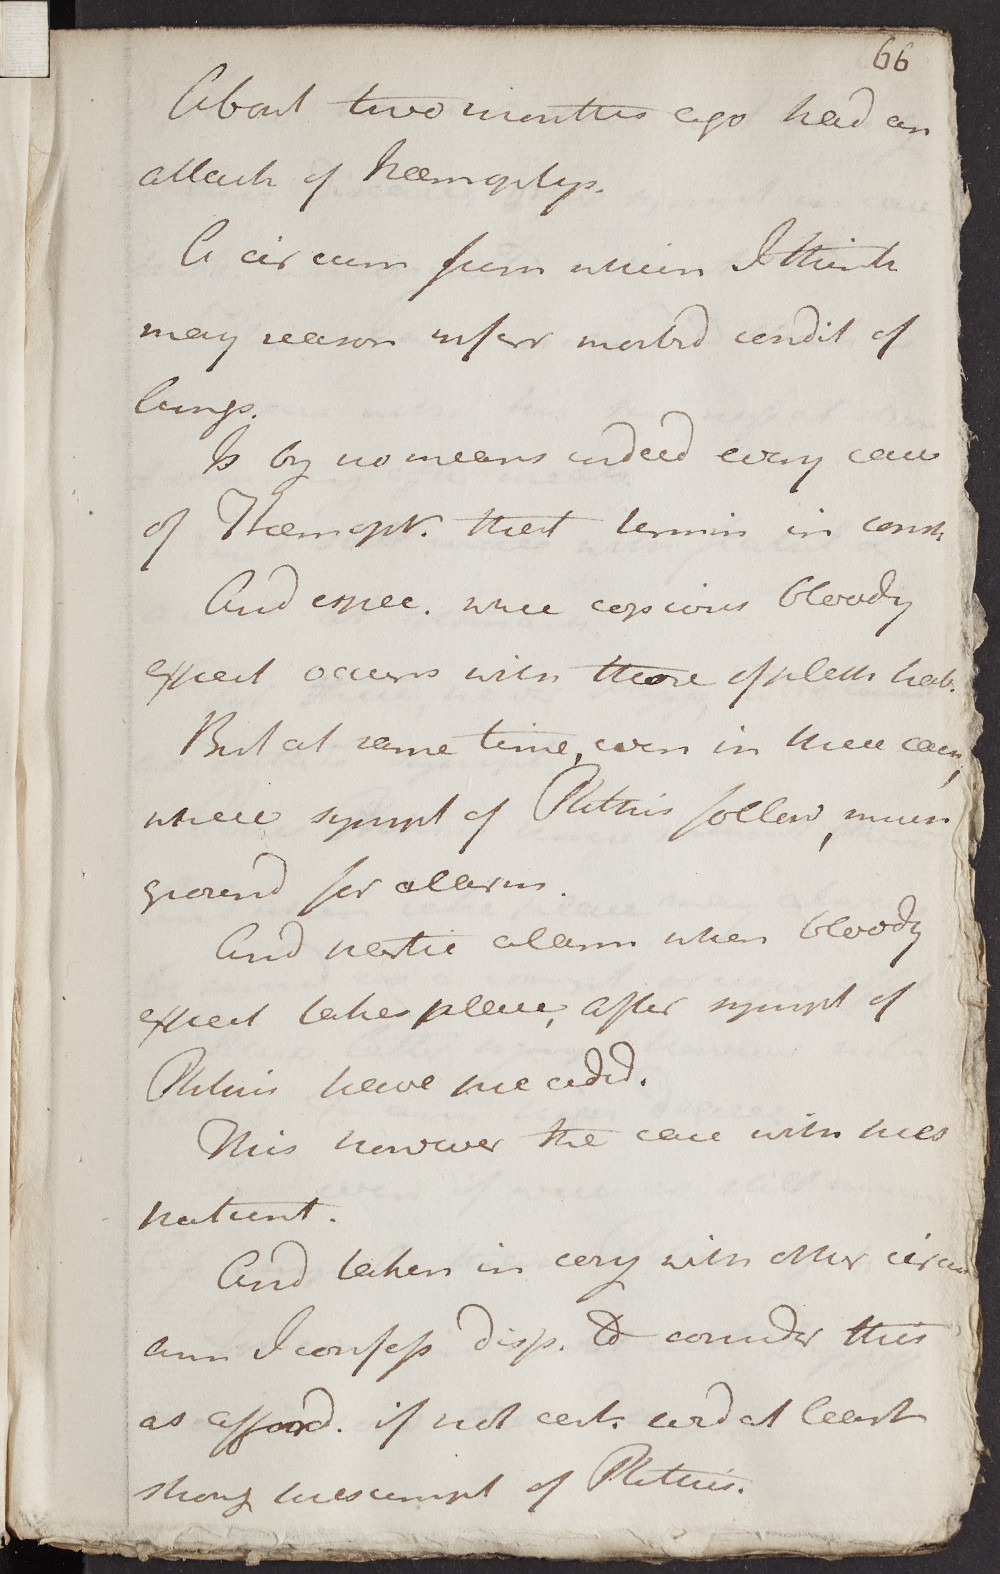 66
About two months ago had an
attack of hæmoptys.
A circum from which I think
may reason infer morbid condit of
lungs.
Is by no means indeed every case
of Hæmopt. that termin in cons.
And espec. when copious bloody
expect occurs with those of pleth hab.
But at same time, even in these cases,
where sympt of Phthisis follow, much
ground for allarm.
And partic alarm when bloody
expect takes place, after sympt of
Phthisis have preceded.
This however the case with pres
patient.
And taken in conj with other circum
am I confess disp. to consider this
as afford. if not cert. evid at least
strong presumpt of Phthisis.